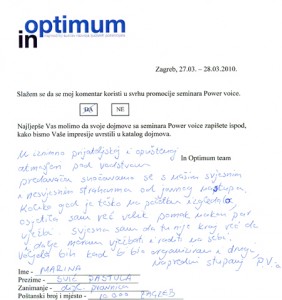 in optimum
Zagreb, 27.03. – 28.03.2010.
Slažem se da se moj komentar koristi u svrhu promocije seminara Power voice.
DA NE
Najljepše Vas molimo da svoje dojmove sa seminara Power voice zapišete ispod,
kako bismo Vaše impresije uvrstili u katalog dojmova.
In Optimum team
U izrazito prijateljskoj i opuštenoj
atmosferi pod vodstvom
predavača suočavamo se s našim svjesnim
i nesvjesnim strahovima od javnog nastupa.
Koliko god je teško na početku izgledalo
osjetila sam već velik pomak nakon par
vježbi svjesna sam da to nije kraj već da
dalje moram vježbati i raditi na sebi.
Voljela bih kad bi bio organiziran i drugi
napredni stupanj P.V.
Ime - MARINA
Prezime -
Zanimanje - dipl. pravnica
Poštanski broj i mjesto - 10 000 ZAGREB